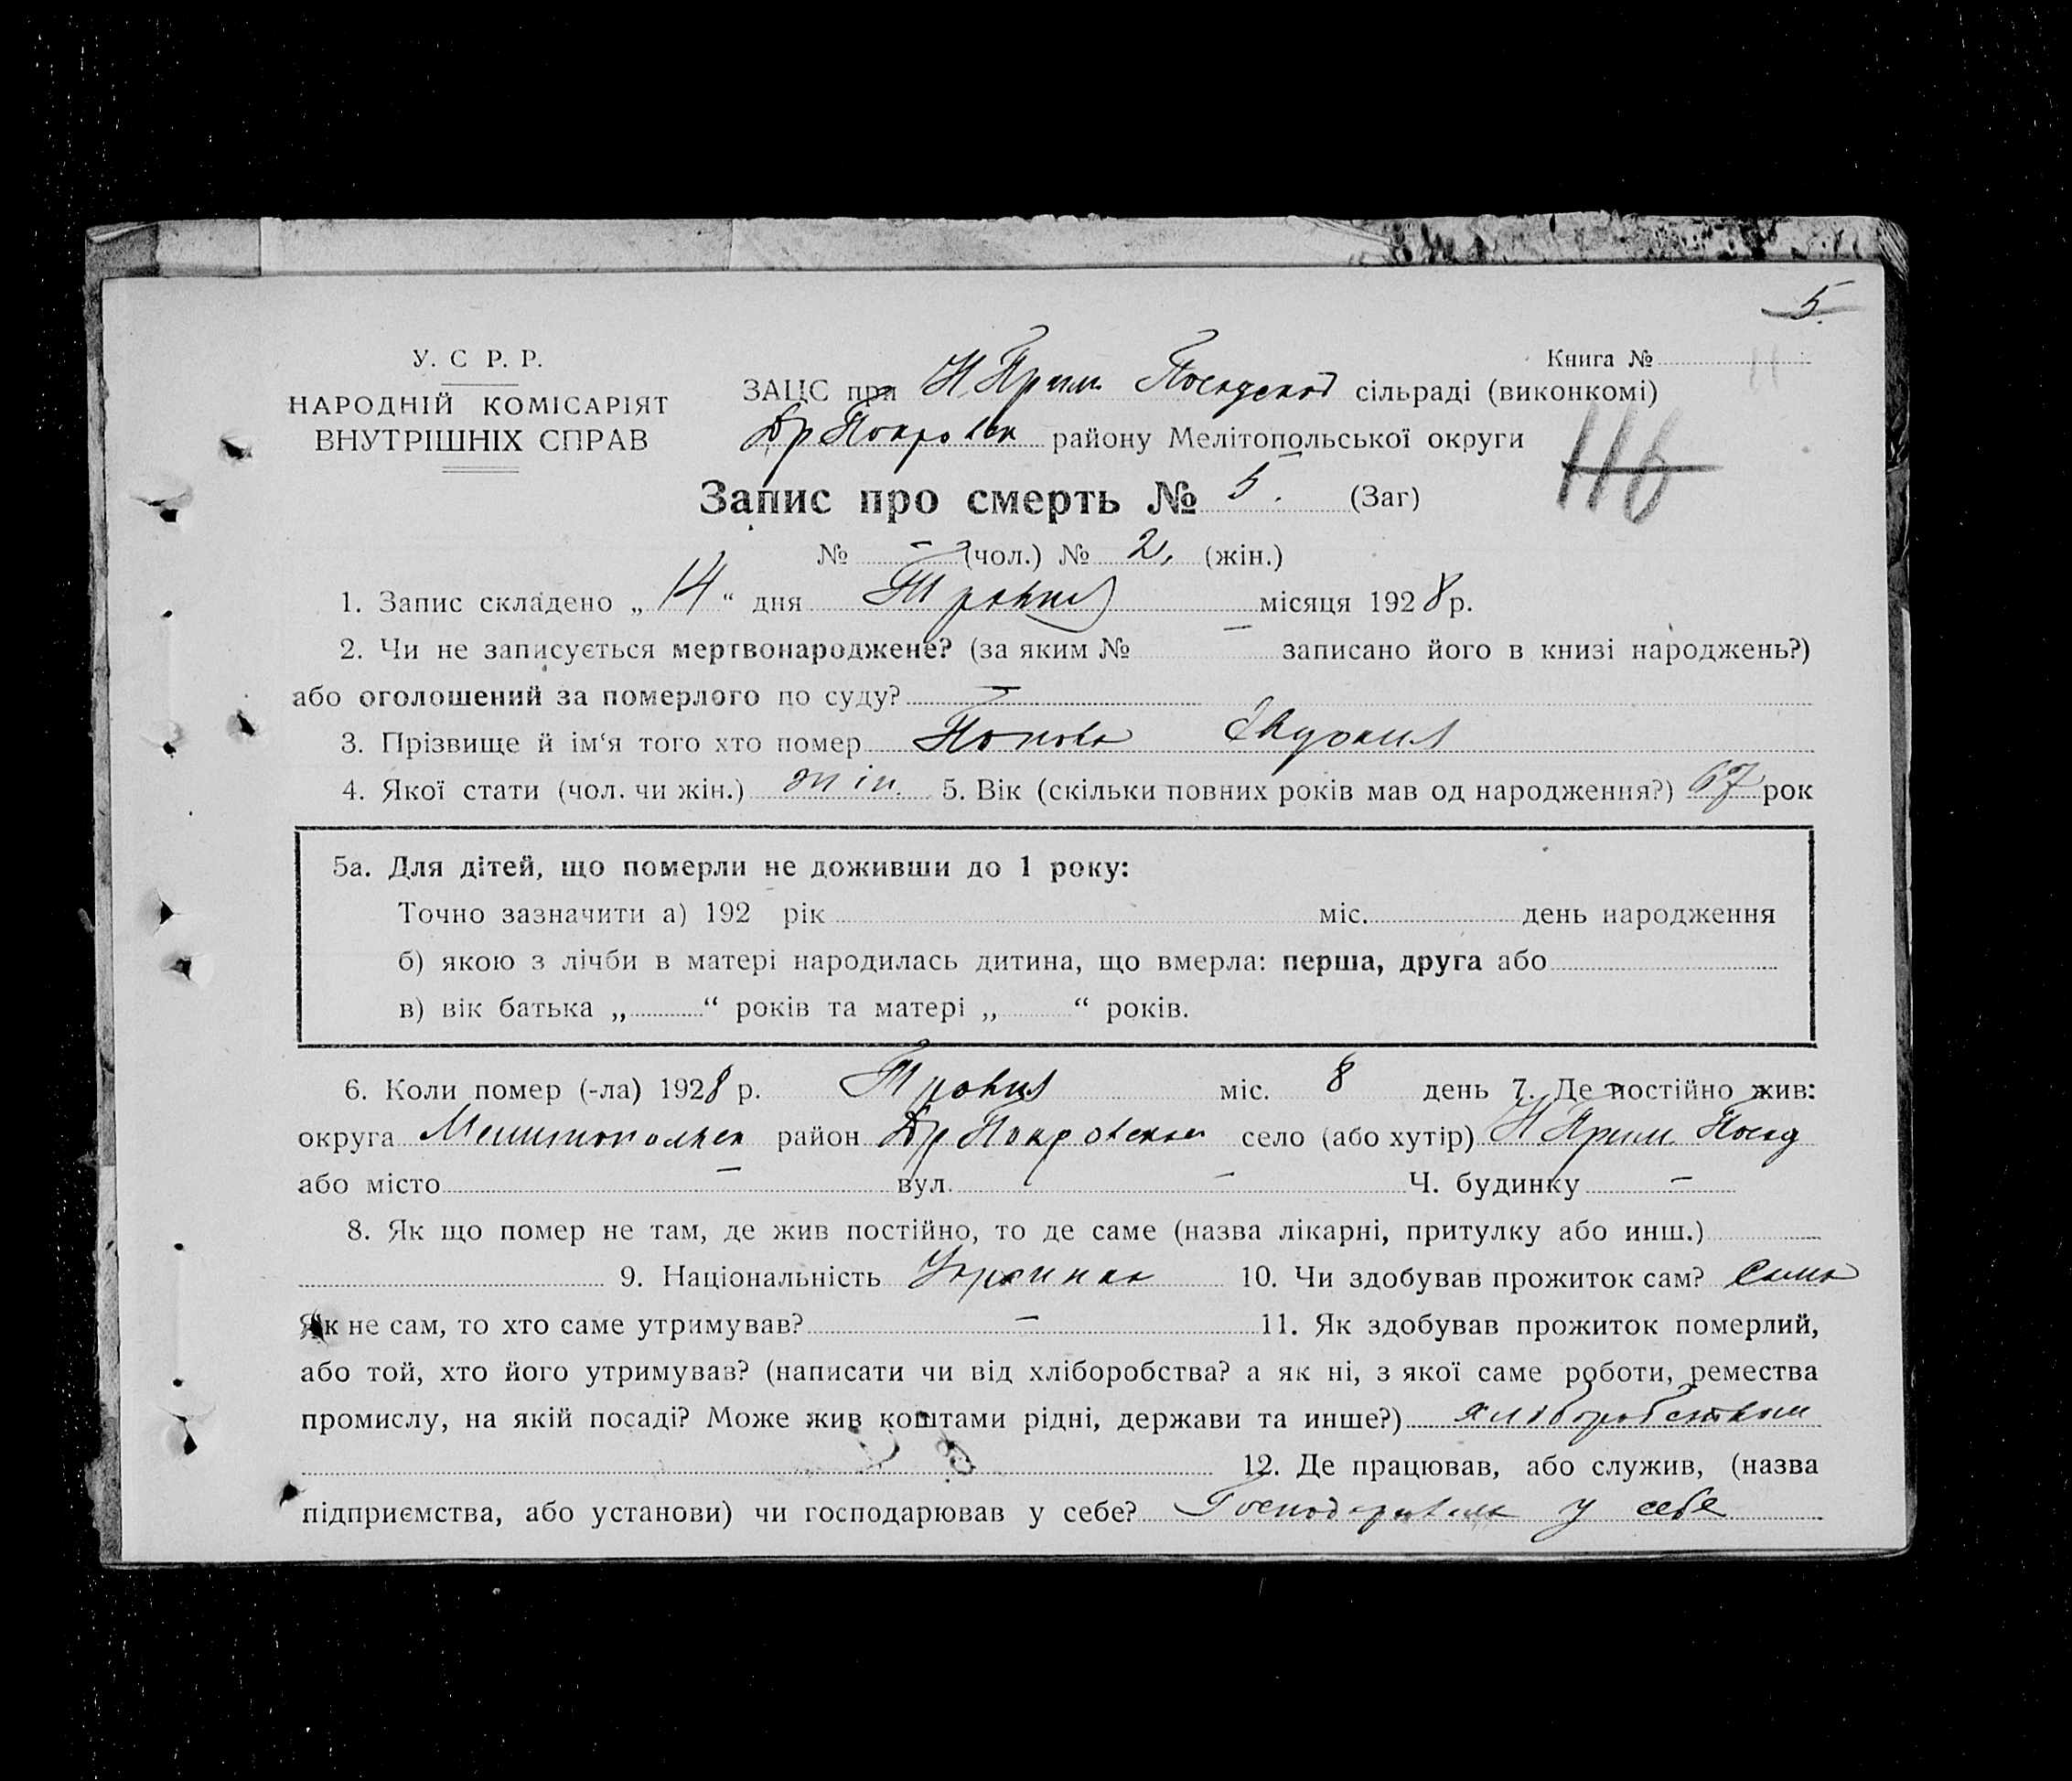 5.
У. С. Р. Р.
Книга №
НАРОДНІЙ КОМІСАРІЯТ
ВНУТРІШНІХ СПРАВ
ЗАЦС при Н Прим Посадской сільраді (виконкомі)
Др Покровск району Мелітопольської округи
116
Запис про смерть № 5. (Заг)
№ – (чол.) № 2. (жін.)
1. Запис складено „ 14 “ дня Травня місяця 1928 р.
2. Чи не записується мертвонароджене? (за яким № – записано його в книзі народжень?)
або оголошений за померлого по суду? –
3. Прізвище й ім‘я того хто помер Попова Евдокия
4. Якої стати (чол. чи жін.) жін. 5. Вік (скільки повних років мав од народження?) 67 рок
5а. Для дітей, що померли не доживши до 1 року:
Точно зазначити а) 192 рік міс. день народження
б) якою з лічби в матері народилась дитина, що вмерла: перша, друга або
в) вік батька „ “ років та матері „ “ років.
6. Коли помер (-ла) 1928 р. Травня міс. 8 день 7. Де постійно жив:
округа район Др Покровском село (або хутір) Н Прим Посад
або місто – вул. – Ч. будинку –
8. Як що помер не там, де жив постійно, то де саме (назва лікарні, притулку або инш.)
9. Національність Украинка 10. Чи здобував прожиток сам? сама
Як не сам, то хто саме утримував? – 11. Як здобував прожиток померлий,
або той, хто його утримував? (написати чи від хліборобства? а як ні, з якої саме роботи, ремества
промислу, на якій посаді? Може жив коштами рідні, держави та инше?) хліборобством
12. Де працював, або служив, (назва
підприємства, або установи) чи господарював у себе? Господарювала у себе